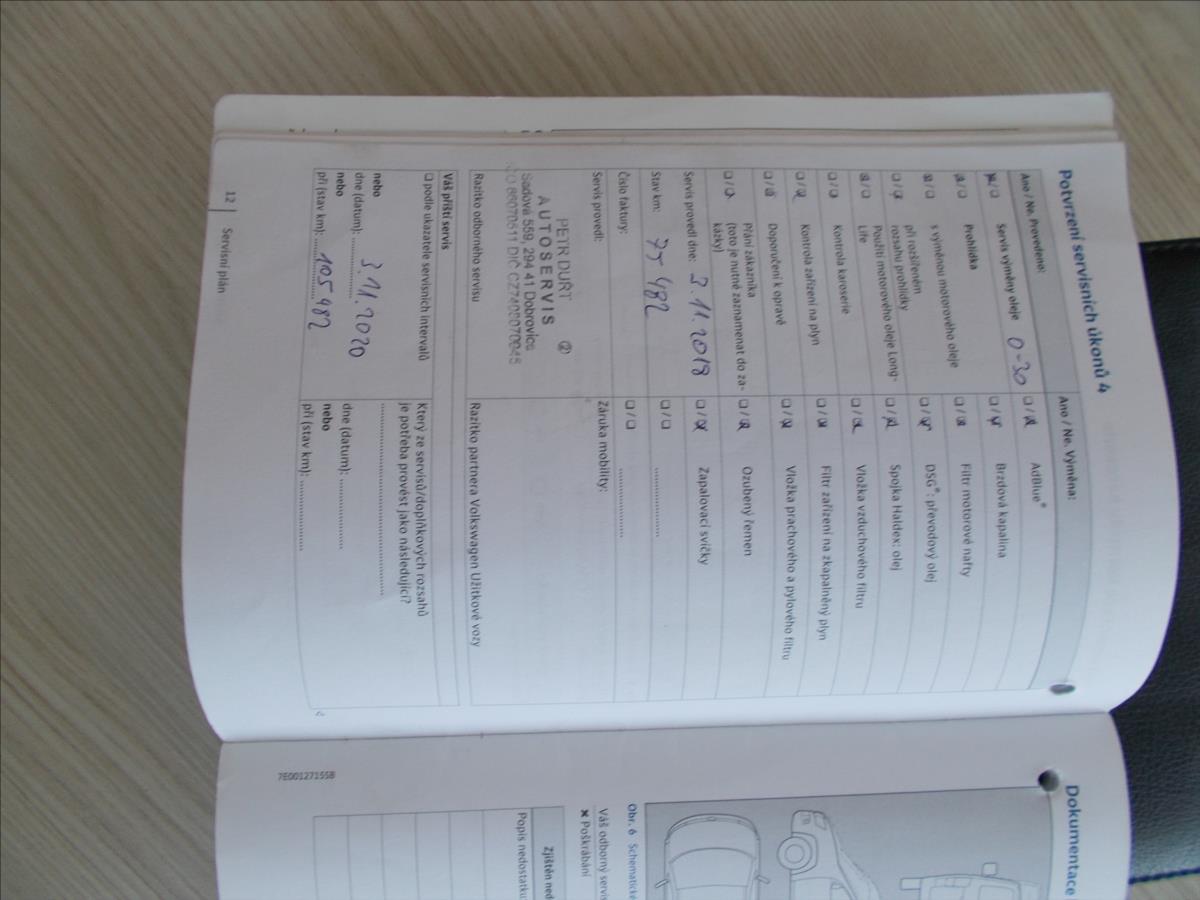 Potvrzení servisních úkonů 4
Ano / Ne. Provedeno:
Servis výměny oleje 0-30
Prohlídka
s výměnou motorového oleje
při rozšířeném
rozsahu prohlídky
Použití motorového oleje Long-
Life
Kontrola karoserie
Kontrola zařízení na plyn
Doporučení k opravě
Přání zákazníka
(toto je nutné zaznamenat do za-
kázky)
Servis provedl dne: 3.11.2018
Stav km: 75 482
Číslo faktury:
Servis provedl:
PETR DURT
AUTOSERVIS ②
Sadová 559, 294 41 Dobrovice
DIČ
Razítko odborného servisu
Ano / Ne. Výměna:
AdBlue®
Brzdová kapalina
Filtr motorové nafty
DSG®: převodový olej
Spojka Haldex: olej
Vložka vzduchového filtru
Filtr zařízení na zkapalněný plyn
Vložka prachového a pylového filtru
Ozubený řemen
Zapalovací svíčky
Záruka mobility:
Razítko partnera Volkswagen Užitkové vozy
Váš příští servis
podle ukazatele servisních intervalů
nebo
dne (datum): 3.11.2020
nebo
při (stav km): 105 982
Který ze servisů/doplňkových rozsahů
je potřeba provést jako následující?
dne (datum):
nebo
při (stav km):
12 Servisní plán
Dokumentace
Obr. 6 Schematické
Váš odborný servis
✖ Poškrábání
Zjištěn ned
Popis nedostatku
7E0012715SB